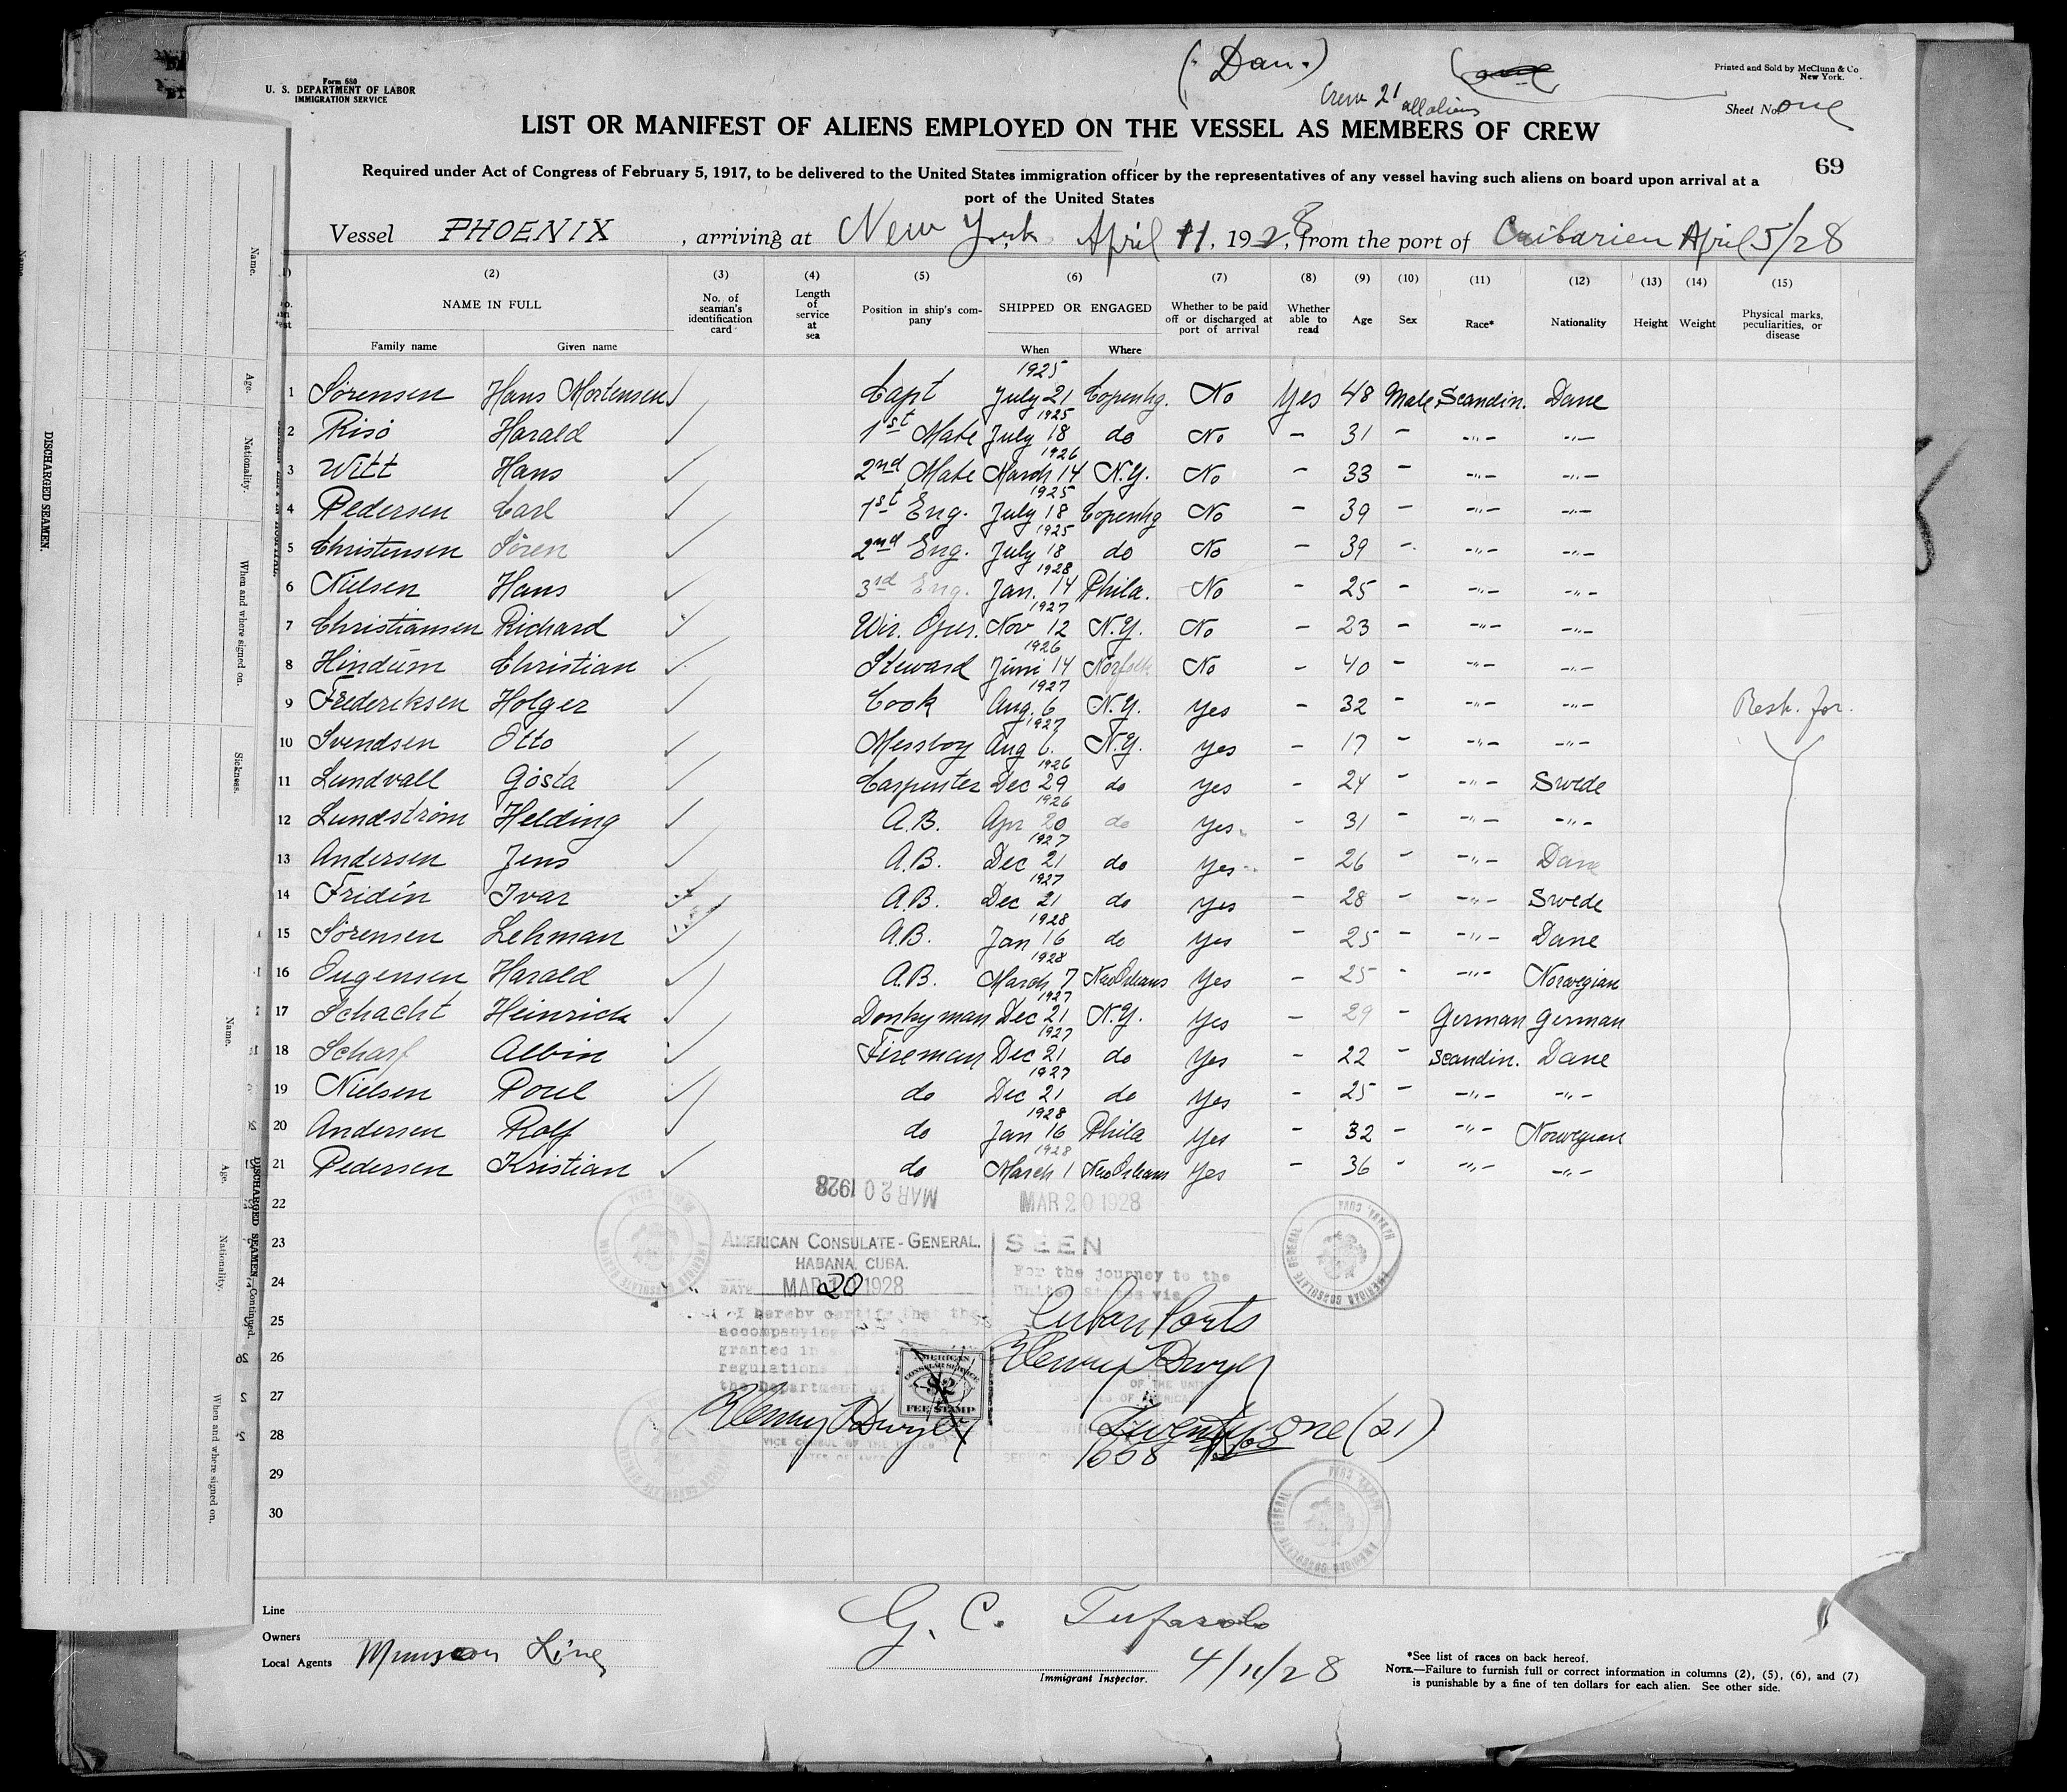 (Dan.)
Form 680
U. S. DEPARTMENT OF LABOR
IMMIGRATION SERVICE
Printed and Sold by McClunn & Co
New York.
Crew 21 all aliens
Sheet No. one
LIST OR MANIFEST OF ALIENS EMPLOYED ON THE VESSEL AS MEMBERS OF CREW
69
Required under Act of Congress of February 5, 1917, to be delivered to the United States immigration officer by the representatives of any vessel having such aliens on board upon arrival at a
port of the United States
Vessel PHOENIX, arriving at New York April 11, 1928, from the port of Caibarien April 5/28
(2) (3) (4) (5) (6) (7) (8) (9) (10) (11) (12) (13) (14) (15)
NAME IN FULL No. of seaman's identification card Length of service at sea Position in ship's company SHIPPED OR ENGAGED Whether to be paid off or discharged at port of arrival Whether able to read Age Sex Race* Nationality Height Weight Physical marks, peculiarities, or disease
Family name Given name When Where
1 Sørensen Hans Mortensen ✓ Capt 1925 July 21 Copenhg. No Yes 48 Male Scandin. Dane
2 Risö Harald ✓ 1st Mate 1925 July 18 do No - 31 - -"- -"-
3 Witt Hans ✓ 2nd Mate 1926 March 14 N.Y. No - 33 - -"- -"-
4 Pedersen Carl ✓ 1st Eng. 1925 July 18 Copenhg No - 39 - -"- -"-
5 Christensen Sören ✓ 2nd Eng. 1925 July 18 do No - 39 - -"- -"-
6 Nielsen Hans ✓ 3rd Eng. 1928 Jan. 14 Phila. No - 25 - -"- -"-
7 Christiansen Richard ✓ Wir. Oper. 1927 Nov 12 N.Y. No - 23 - -"- -"-
8 Hindum Christian ✓ Steward 1926 Juni 14 Norfolk No - 40 - -"- -"-
9 Frederiksen Holger ✓ Cook 1927 Aug. 6 N.Y. Yes - 32 - -"- -"-
10 Svendsen Otto ✓ Messboy 1927 Aug 6. N.Y. Yes - 17 - -"- -"-
11 Lundvall Gösta ✓ Carpenter 1926 Dec 29 do Yes - 24 - -"- Swede
12 Lundström Helding ✓ A.B. 1926 Apr 20 do Yes - 31 - -"- -"-
13 Andersen Jens ✓ A.B. 1927 Dec 21 do Yes - 26 - -"- Dane
14 Fridin Ivar A.B. 1927 Dec 21 do Yes - 28 - -"- Swede
15 Sörensen Lehman ✓ A.B. 1928 Jan 16 do Yes - 25 - -"- Dane
16 Eugensen Harald ✓ A.B. 1928 March 7 New Orleans Yes - 25 - -"- Norwegian
17 Schacht Heinrich ✓ Donkyman 1927 Dec 21 N.Y. Yes - 29 - German German
18 Scharf Albin ✓ Fireman 1927 Dec 21 do Yes - 22 - Scandin. Dane
19 Nielsen Poul ✓ do 1927 Dec 21 do Yes - 25 - -"- -"-
20 Andersen Rolf ✓ do 1928 Jan 16 Phila Yes - 32 - -"- Norwegian
21 Pedersen Kristian ✓ do 1928 March 1 New Orleans Yes - 36 - -"- -"-
22
MAR 20 1928
MAR 20 1928
23
AMERICAN CONSULATE-GENERAL.
HABANA, CUBA.
SEEN
24
DATE MAR 20 1928
For the journey to the
United States via
25
I hereby certify that the
accompanying
Cuban Ports
26
granted in
regulations
the Department of
AMERICAN
CONSULAR SERVICE
$2
FEE STAMP
27
Henry Dwyer
Henry Dwyer
28
VICE CONSUL OF THE UNITED
STATES OF AMERICA
Twenty one (21)
29
30
AMERICAN CONSULATE GENERAL HABANA, CUBA
Line
Owners
Local Agents Munson Line
Immigrant Inspector. 4/11/28
*See list of races on back hereof.
NOTE.—Failure to furnish full or correct information in columns (2), (5), (6), and (7)
is punishable by a fine of ten dollars for each alien. See other side.
DISCHARGED SEAMEN.
Name.
Age.
Nationality.
When and where signed on.
Sickness.
DISCHARGED SEAMEN—Continued.
Name.
Age.
Nationality.
When and where signed on.